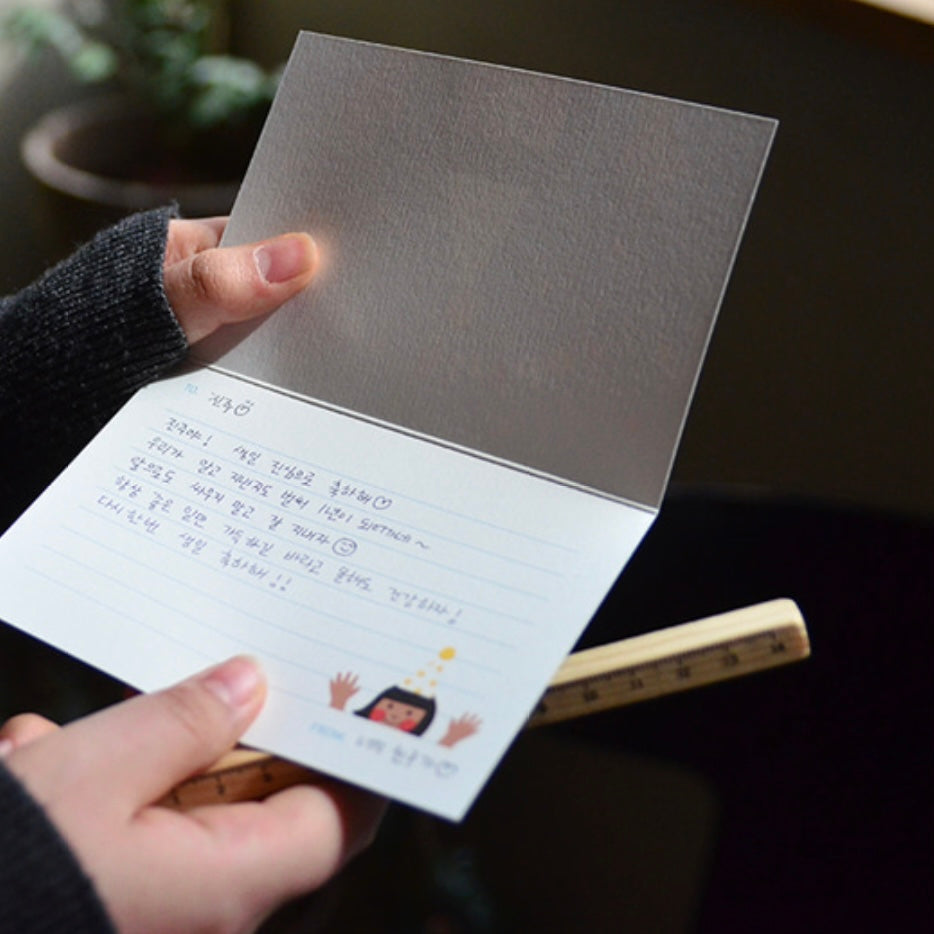 TO. 진주
진주야! 생일 진심으로 축하해
우리가 알고 지낸지도 벌써 1년이 되어가네~
앞으로도 싸우지 말고 잘 지내자
항상 좋은 일만 가득하길 바라고 올해도 건강하자!
다시한번 생일 축하해!!
FROM. 너의 친구가
10 11 12 13 14